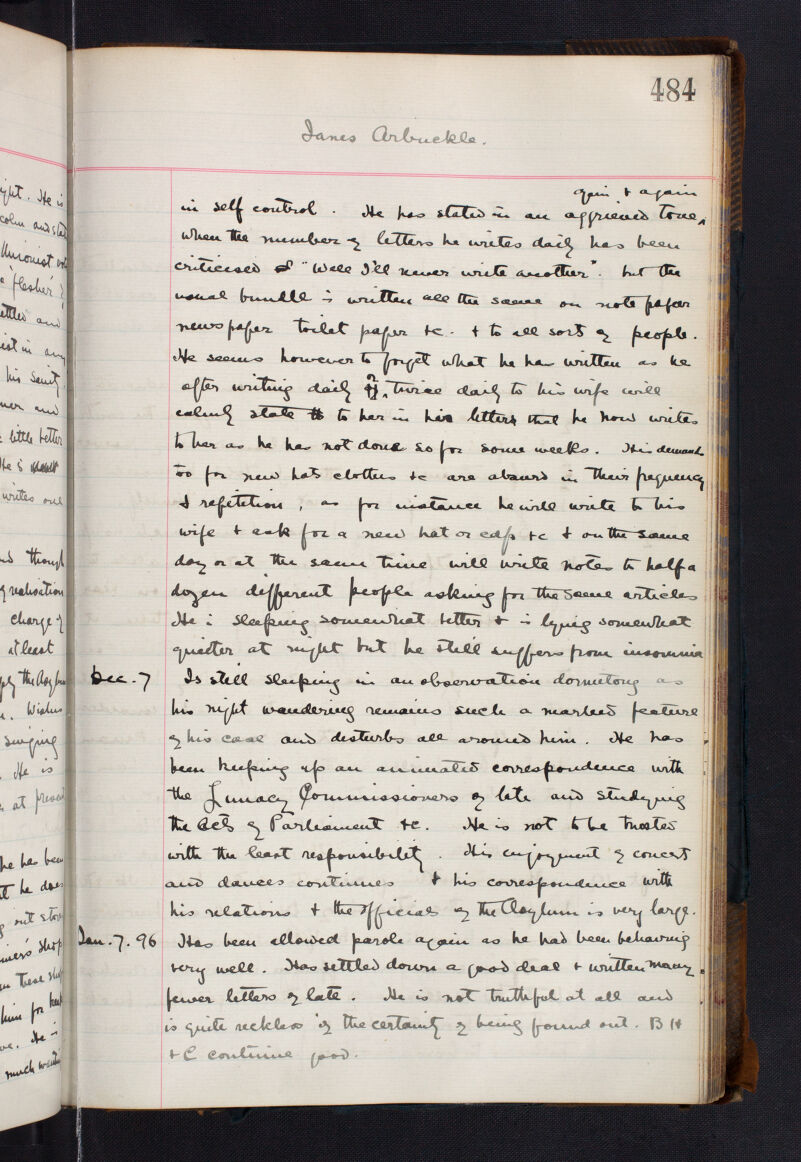 484
James Arbuckle.
again & again
in self control. He has stated in an aggrieved tone,
when the number of letters he writes daily has been
criticised "Well I'll never write another". but the
usual bundle is written all the same on note paper
newspaper toilet paper &c. & to all sorts of people.
He seems however to forget what he has written as he
after writing daily or twice daily to his wife will
calmly state to her in his letters that he now writes
to her as he has not done so for some weeks. His demands
too for new hats clothes &c are absurd in their frequency
& repetition, as for instance he will write to his
wife & ask for a new hat or cap &c & on the same
day or at the same time will write notes to half a
dozen different people asking for the same articles
He is sleeping somewhat better & is lying somewhat
quieter at night but he still suffers from insomnia
Dec. 7 Is still sleeping in an observation dormitory as
his night wandering remains such a marked feature
of his case and disturbs all around him. He has
been keeping up an animated correspondence with
the Lunacy Commissioners of late and studying
the Acts of Parliament &c. He is not to be trusted
with the least responsibility. His enjoyment of concerts
and dances continues & his correspondence with
his relations & the officials of the Asylum is very large.
Jan. 7. 96 Has been allowed parole again as he had been behaving
very well. Has settled down a good deal & written many
fewer letters of late. He is not truthful at all and
is quite reckless of the certainty of being found out. B H
& C continue good.